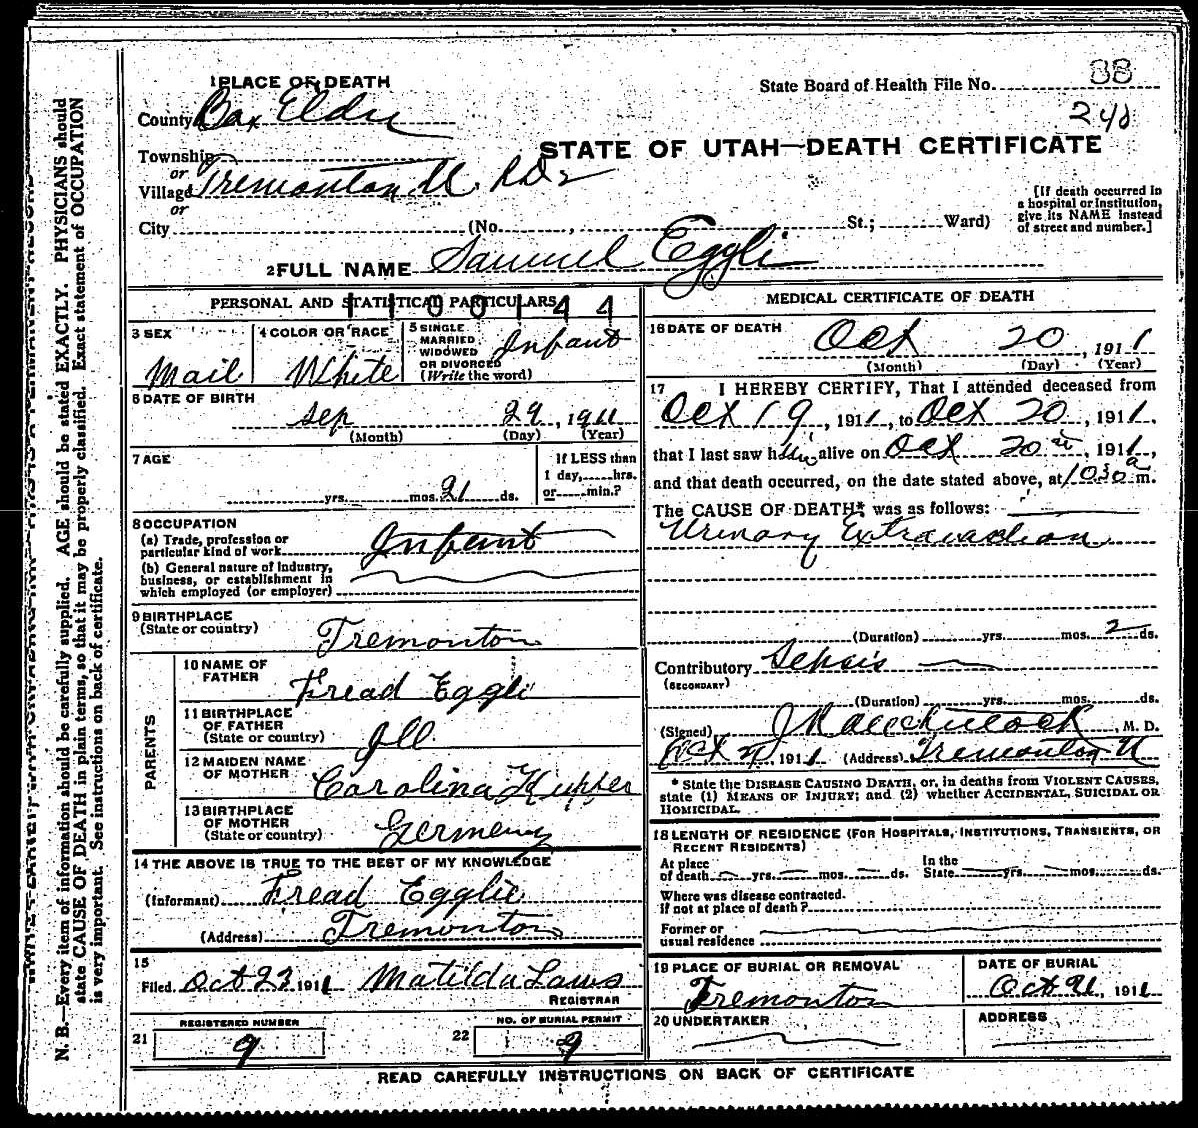 1 PLACE OF DEATH
State Board of Health File No. 88
County Box Elder
240
Township
STATE OF UTAH—DEATH CERTIFICATE
or
Village Tremonton U. RD2
or
City (No. , St.; Ward)
[If death occurred in
a hospital or institution,
give its NAME instead
of street and number.]
2 FULL NAME Samuel Eggli
PERSONAL AND STATISTICAL PARTICULARS
1100144
3 SEX
Mail
4 COLOR OR RACE
White
5 SINGLE
MARRIED
WIDOWED
OR DIVORCED
(Write the word)
Infant
6 DATE OF BIRTH
Sep 29, 1911
(Month) (Day) (Year)
7 AGE
yrs. mos. 21 ds.
If LESS than
1 day, hrs.
or min.?
8 OCCUPATION
(a) Trade, profession or
particular kind of work Infant
(b) General nature of industry,
business, or establishment in
which employed (or employer)
9 BIRTHPLACE
(State or country)
Tremonton
PARENTS
10 NAME OF
FATHER
Fread Eggli
11 BIRTHPLACE
OF FATHER
(State or country)
Ill
12 MAIDEN NAME
OF MOTHER
Carolina Kupfer
13 BIRTHPLACE
OF MOTHER
(State or country)
Germeny
14 THE ABOVE IS TRUE TO THE BEST OF MY KNOWLEDGE
(Informant) Fread Egglie
(Address) Tremonton
15
Filed Oct 23 1911 Matilda Laws
REGISTRAR
REGISTERED NUMBER
21 9
NO. OF BURIAL PERMIT
22 9
MEDICAL CERTIFICATE OF DEATH
16 DATE OF DEATH
Oct 20, 1911
(Month) (Day) (Year)
17 I HEREBY CERTIFY, That I attended deceased from
Oct 19, 1911, to Oct 20, 1911,
that I last saw him alive on Oct 20, 1911,
and that death occurred, on the date stated above, at 1030 a m.
The CAUSE OF DEATH* was as follows:
Urinary Extravacation
(Duration) yrs. mos. 2 ds.
Contributory Sepsis
(SECONDARY)
(Duration) yrs. mos. ds.
(Signed) , M. D.
Oct 1911 (Address) Tremonton U
* State the DISEASE CAUSING DEATH, or, in deaths from VIOLENT CAUSES,
state (1) MEANS OF INJURY; and (2) whether ACCIDENTAL, SUICIDAL OR
HOMICIDAL.
18 LENGTH OF RESIDENCE (FOR HOSPITALS, INSTITUTIONS, TRANSIENTS, OR
RECENT RESIDENTS)
At place
of death yrs. mos. ds.
In the
State yrs. mos. ds.
Where was disease contracted.
if not at place of death?
Former or
usual residence
19 PLACE OF BURIAL OR REMOVAL
Tremonton
DATE OF BURIAL
Oct 21, 1911
20 UNDERTAKER
ADDRESS
READ CAREFULLY INSTRUCTIONS ON BACK OF CERTIFICATE
N. B.—Every item of information should be carefully supplied. AGE should be stated EXACTLY. PHYSICIANS should
state CAUSE OF DEATH in plain terms, so that it may be properly classified. Exact statement of OCCUPATION
is very important. See instructions on back of certificate.